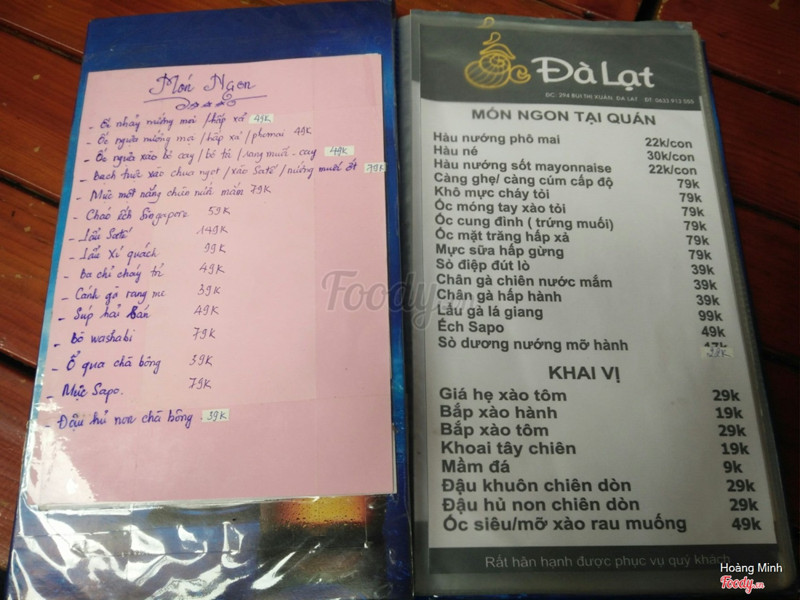 Món Ngon
- Ốc nhảy nướng mọi / hấp xả 49K
- Ốc ngựa nướng mọi / hấp xả / phomai 49K
- Ốc ngựa xào bơ cay / bơ tỏi / rang muối - cay 49K
- Bạch tuộc xào chua ngọt / xào Satế / nướng muối ớt 79K
- Mực một nắng chiên nước mắm 79K
- Cháo ếch Singapore 59K
- Lẩu Satế 149K
- Lẩu Xí quách 99K
- Ba chỉ cháy tỏi 49K
- Cánh gà rang me 39K
- Súp hải sản 49K
- Bò washabi 79K
- Ổ qua chà bông 39K
- Mực Sapo. 79K
- Đậu hủ non chà bông 39K
Ốc Đà Lạt
ĐC: 294 BÙI THỊ XUÂN, ĐÀ LẠT ĐT: 0633 913 000
MÓN NGON TẠI QUÁN
Hàu nướng phô mai 22k/con
Hàu né 30k/con
Hàu nướng sốt mayonnaise 22k/con
Càng ghẹ/ càng cúm cấp độ 79k
Khô mực cháy tỏi 79k
Ốc móng tay xào tỏi 79k
Ốc cung đình ( trứng muối) 79k
Ốc mặt trăng hấp xả 79k
Mực sữa hấp gừng 79k
Sò điệp đút lò 39k
Chân gà chiên nước mắm 39k
Chân gà hấp hành 39k
Lẩu gà lá giang 99k
Ếch Sapo 49k
Sò dương nướng mỡ hành
KHAI VỊ
Giá hẹ xào tôm 29k
Bắp xào hành 19k
Bắp xào tôm 29k
Khoai tây chiên 19k
Mầm đá 9k
Đậu khuôn chiên dòn 29k
Đậu hủ non chiên dòn 29k
Ốc siêu/mỡ xào rau muống 49k
Rất hân hạnh được phục vụ quý khách
Foody.vn
Hoàng Minh
Foody.vn